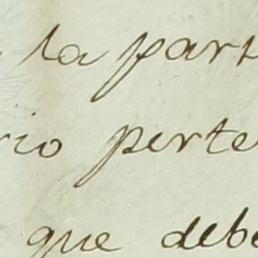 la part
rio perte
que debe